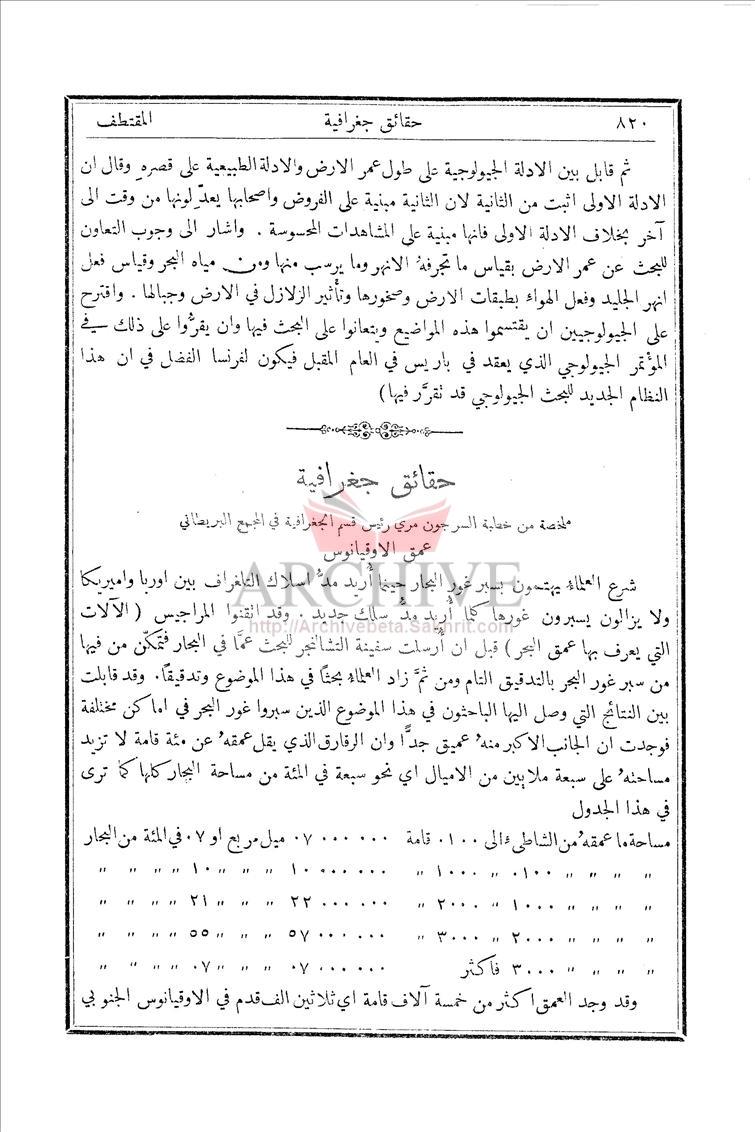 ٨٢٠ حقائق جغرافية المقتطف
ثم قابل بين الادلة الجيولوجية على طول عمر الارض والادلة الطبيعية على قصره وقال ان
الادلة الاولى اثبت من الثانية لان الثانية مبنية على الفروض واصحابها يعدّلونها من وقت الى
آخر بخلاف الادلة الاولى فانها مبنية على المشاهدات المحسوسة . واشار الى وجوب التعاون
للبحث عن عمر الارض بقياس ما تجرفهُ الانهر وما يرسب منها ومن مياه البحر وقياس فعل
انهر الجليد وفعل الهواء بطبقات الارض وصخورها وتأثير الزلازل في الارض وجبالها . واقترح
على الجيولوجيين ان يقتسموا هذه المواضيع ويتعانوا على البحث فيها وان يقرُّوا على ذلك في
المؤتمر الجيولوجي الذي يعقد في باريس في العام المقبل فيكون لفرنسا الفضل في ان هذا
النظام الجديد للبحث الجيولوجي قد تقرَّر فيها)
حقائق جغرافية
ملخصة من خطبة السر جون مري رئيس قسم الجغرافية في المجمع البريطاني
عمق الاوقيانوس
شرع العلماء يهتمون بسبر غور البحار حينما أُريد مدُّ اسلاك التلغراف بين اوربا واميركا
ولا يزالون يسبرون غورها كلما أُريد مدُّ سلك جديد . وقد اتقنوا المراجيس (الآلات
التي يعرف بها عمق البحر) قبل ان أُرسلت سفينة التشالنجر للبحث عمَّا في البحار فتمكّن من فيها
من سبر غور البحر بالتدقيق التام ومن ثمَّ زاد العلماء بحثًا في هذا الموضوع وتدقيقًا. وقد قابلت
بين النتائج التي وصل اليها الباحثون في هذا الموضوع الذين سبروا غور البحر في اماكن مختلفة
فوجدت ان الجانب الاكبر منهُ عميق جدًّا وان الرقارق الذي يقل عمقهُ عن مئة قامة لا تزيد
مساحتهُ على سبعة ملايين من الاميال اي نحو سبعة في المئة من مساحة البحار كلها كما ترى
في هذا الجدول
مساحة ما عمقهُ من الشاطىء الى ٠١٠٠ قامة ٠٧ ٠٠٠ ٠٠٠ ميل مربع او ٠٧ في المئة من البحار
" " " " ٠١٠٠ " ١٠٠٠ " ١٠ ٠٠٠ ٠٠٠ " " " ١٠ " " " "
" " " " ١٠٠٠ " ٢٠٠٠ " ٢٢ ٠٠٠ ٠٠٠ " " " ٢١ " " " "
" " " " ٢٠٠٠ " ٣٠٠٠ " ٥٧ ٠٠٠ ٠٠٠ " " " ٥٥ " " " "
" " " " ٣٠٠٠ فاكثر ٠٧ ٠٠٠ ٠٠٠ " " " ٠٧ " " " "
وقد وجد العمق اكثر من خمسة آلاف قامة اي ثلاثين الف قدم في الاوقيانوس الجنوبي
ARCHIVE
http://Archivebeta.Sakhrit.com